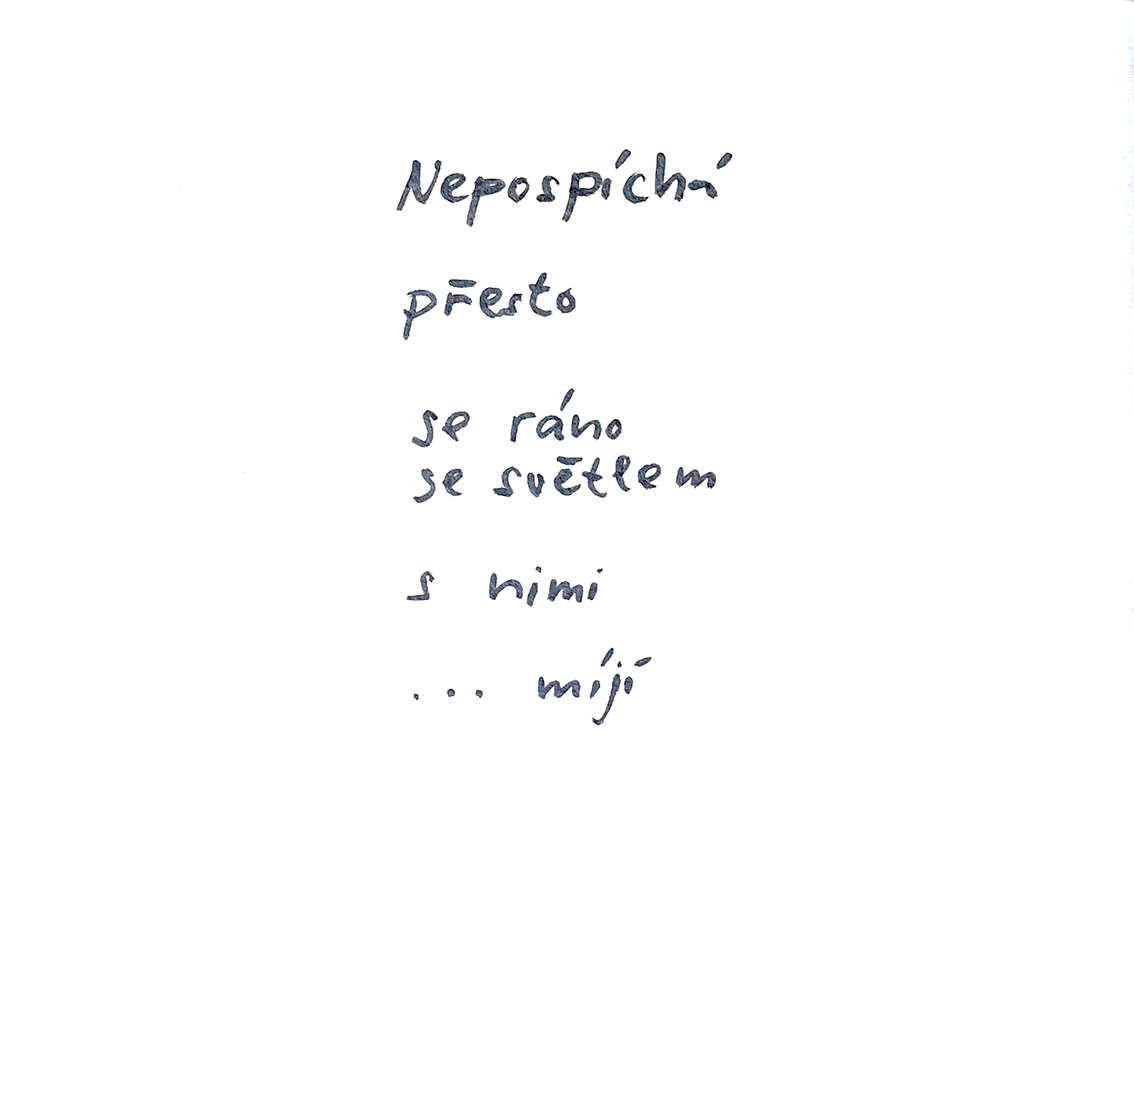 Nepospíchá
přesto
se ráno
se světlem
s nimi
... míjí